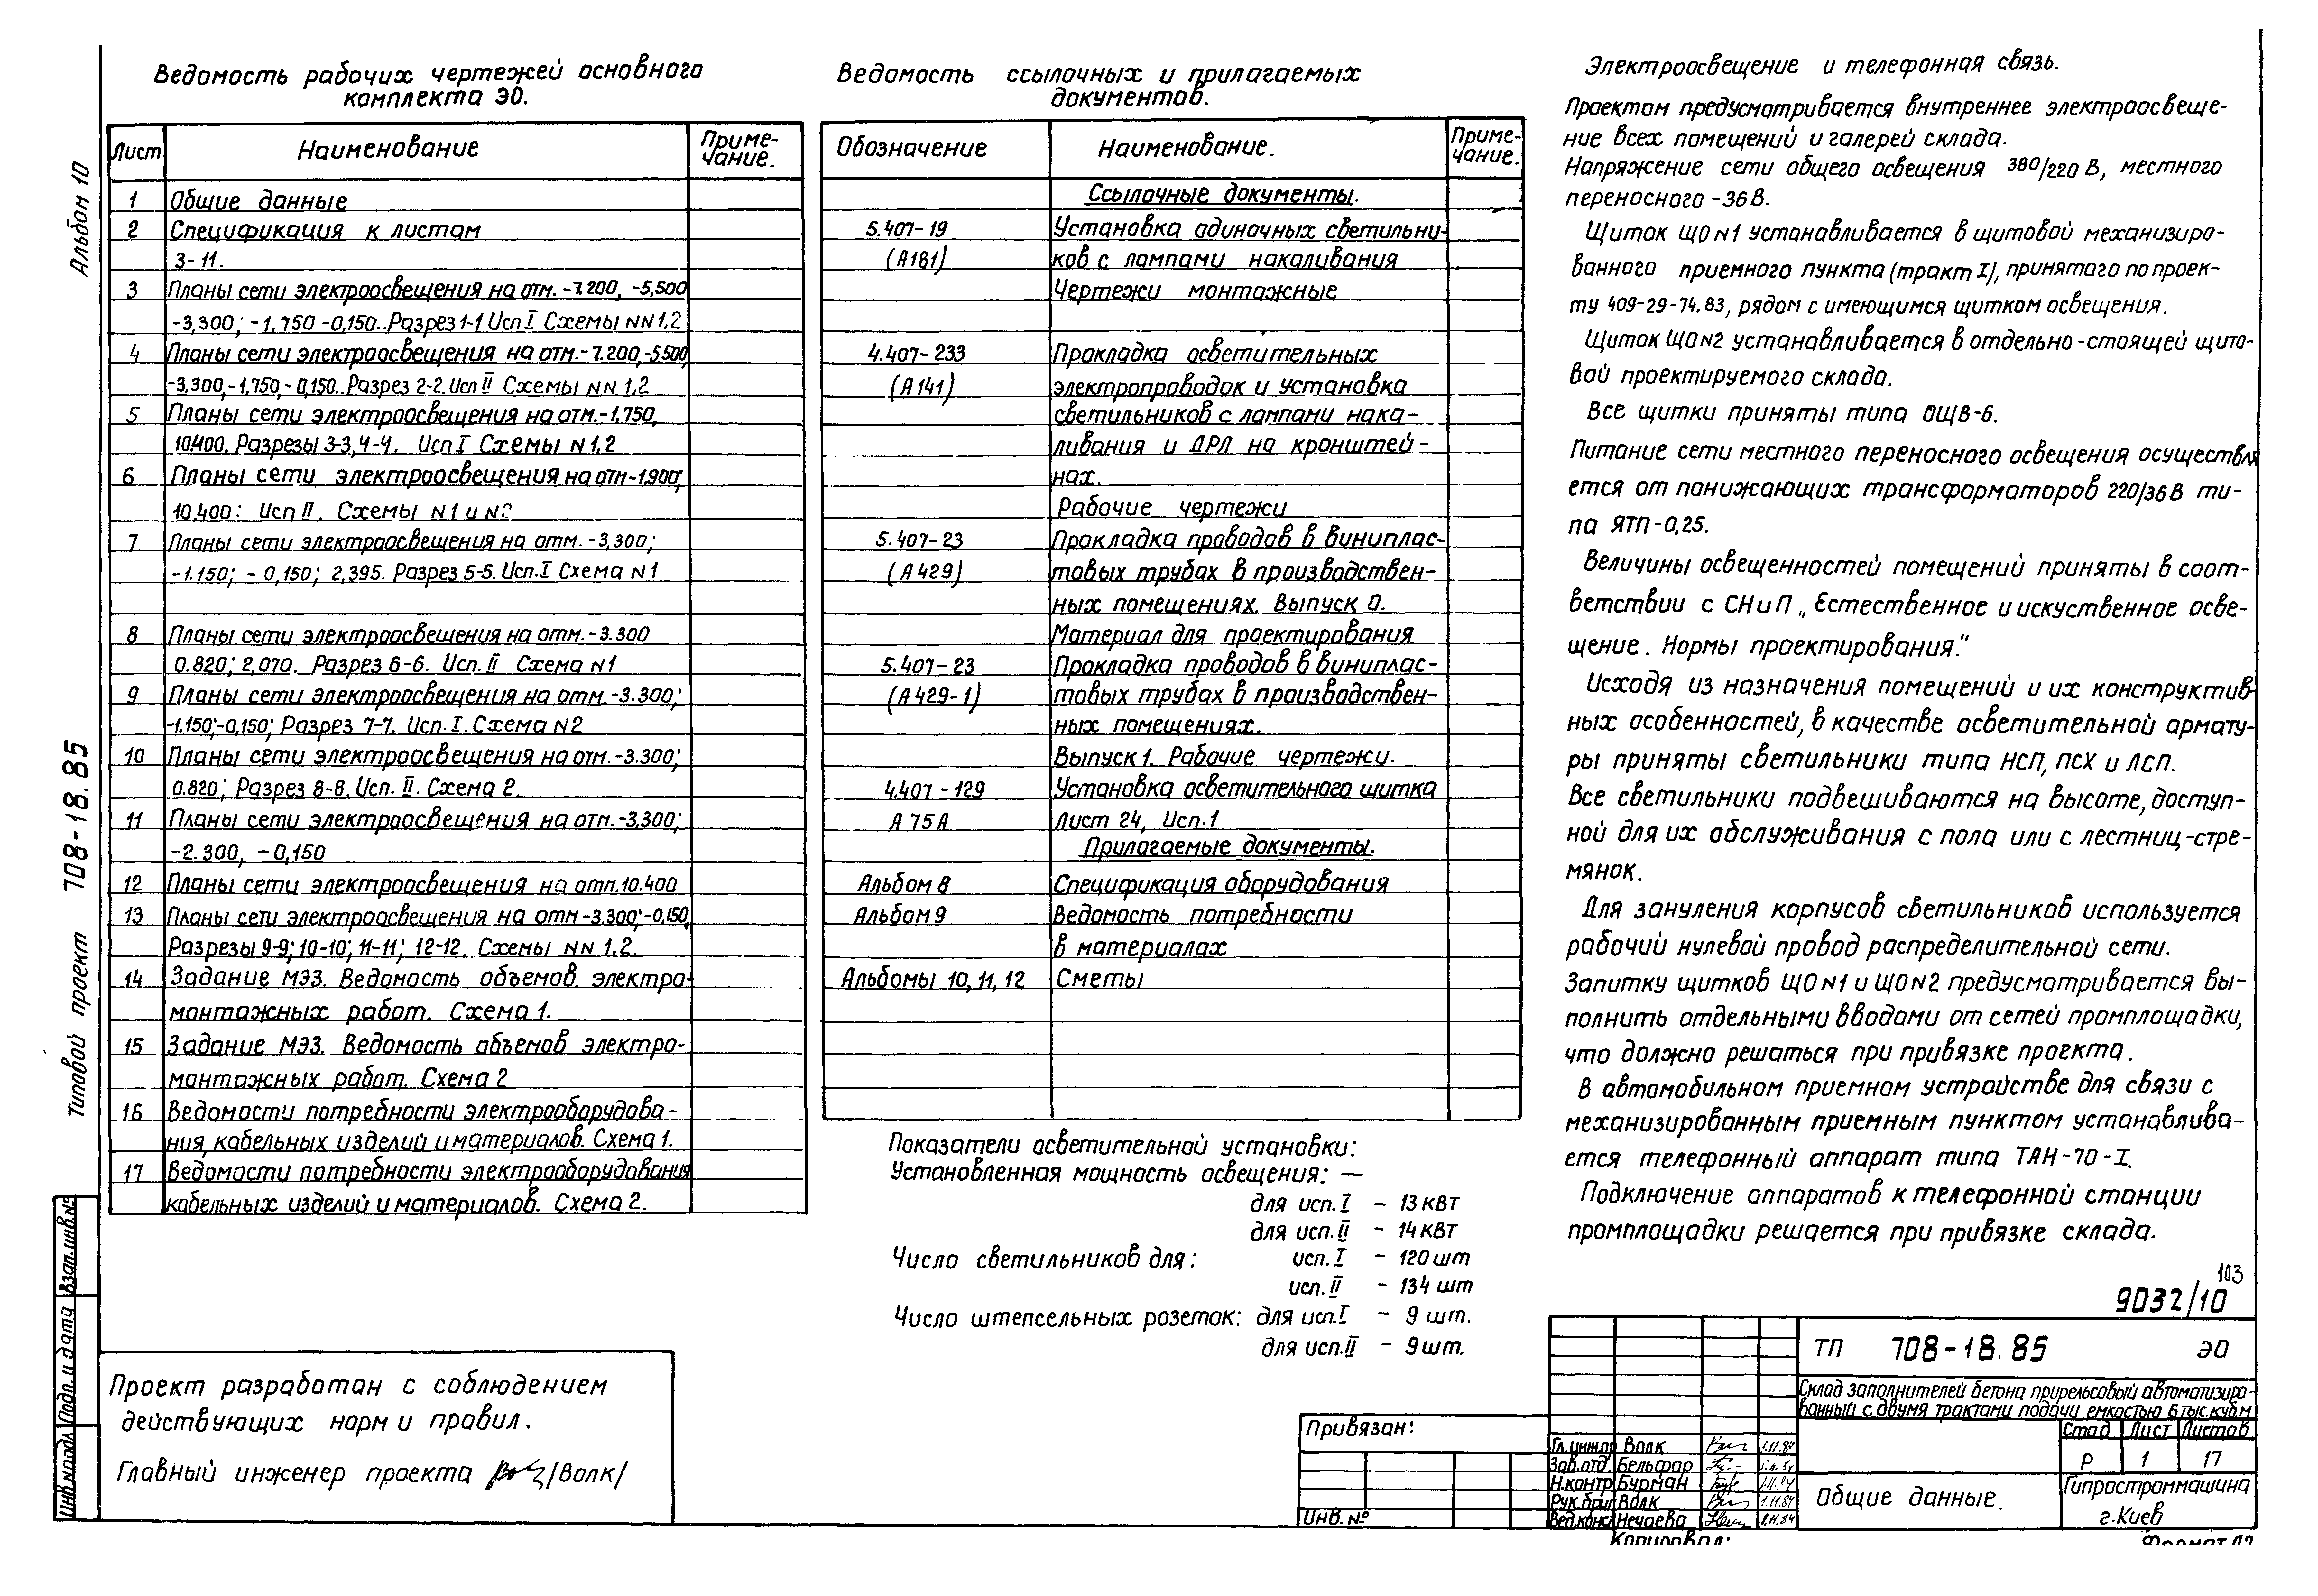 Альбом 10
Типовой проект 708-18.85
Взам.инв.№
Подп. и дата
Инв.№подл
Ведомость рабочих чертежей основного
комплекта ЭО.
Лист Наименование Приме-
чание.
1 Общие данные
2 Спецификация к листам
3-11.
3 Планы сети электроосвещения на отм. -7.200, -5,500
-3,300; -1,750 -0,150. Разрез 1-1 Исп I Схемы NN 1,2
4 Планы сети электроосвещения на отм.-7.200,-5,500,
-3,300,-1,750,-0,150. Разрез 2-2. Исп II Схемы NN 1,2
5 Планы сети электроосвещения на отм.-1,750,
10.400. Разрезы 3-3, 4-4. Исп I Схемы N 1,2
6 Планы сети электроосвещения на отм-1.900;
10.400: Исп II. Схемы N1 и N2
7 Планы сети электроосвещения на отм. -3,300;
-1.150; - 0,150; 2,395. Разрез 5-5. Исп.I Схема N1
8 Планы сети электроосвещения на отм. -3.300
0.820; 2,070. Разрез 6-6. Исп. II Схема N1
9 Планы сети электроосвещения на отм. -3.300;
-1.150;-0,150; Разрез 7-7. Исп. I. Схема N2
10 Планы сети электроосвещения на отм.-3.300;
0.820; Разрез 8-8. Исп. II. Схема 2.
11 Планы сети электроосвещения на отм.-3,300;
-2.300, -0,150
12 Планы сети электроосвещения на отм.10.400
13 Планы сети электроосвещения на отм-3.300;-0,150,
Разрезы 9-9; 10-10; 11-11; 12-12. Схемы NN 1,2.
14 Задание МЭЗ. Ведомость объемов электро-
монтажных работ. Схема 1.
15 Задание МЭЗ. Ведомость объемов электро-
монтажных работ. Схема 2
16 Ведомости потребности электрооборудова-
ния, кабельных изделий и материалов. Схема 1.
17 Ведомости потребности электрооборудования
кабельных изделий и материалов. Схема 2.
Проект разработан с соблюдением
действующих норм и правил.
Главный инженер проекта /Волк/
Ведомость ссылочных и прилагаемых
документов.
Обозначение Наименование. Приме-
чание.
Ссылочные документы.
5.407-19 Установка одиночных светильни-
(А181) ков с лампами накаливания
Чертежи монтажные
4.407-233 Прокладка осветительных
(А141) электропроводок и установка
светильников с лампами нака-
ливания и ДРЛ на кронштей-
нах.
Рабочие чертежи
5.407-23 Прокладка проводов в виниплас-
(А429) товых трубах в производствен-
ных помещениях. Выпуск 0.
Материал для проектирования
5.407-23 Прокладка проводов в виниплас-
(А429-1) товых трубах в производствен-
ных помещениях.
Выпуск 1. Рабочие чертежи.
4.407-129 Установка осветительного щитка
А75А Лист 24, Исп.1
Прилагаемые документы.
Альбом 8 Спецификация оборудования
Альбом 9 Ведомость потребности
в материалах
Альбомы 10, 11, 12 Сметы
Показатели осветительной установки:
Установленная мощность освещения: —
для исп. I - 13 кВт
для исп. II - 14 кВт
Число светильников для: исп. I - 120 шт
исп. II - 134 шт
Число штепсельных розеток: для исп. I - 9 шт.
для исп. II - 9 шт.
Электроосвещение и телефонная связь.
Проектом предусматривается внутреннее электроосвеще-
ние всех помещений и галерей склада.
Напряжение сети общего освещения 380/220 В, местного
переносного -36 В.
Щиток ЩО N1 устанавливается в щитовой механизиро-
ванного приемного пункта (тракт I), принятого по проек-
ту 409-29-74.83, рядом с имеющимся щитком освещения.
Щиток ЩО N2 устанавливается в отдельно-стоящей щито-
вой проектируемого склада.
Все щитки приняты типа ОЩВ-6.
Питание сети местного переносного освещения осуществля
ется от понижающих трансформаторов 220/36 В ти-
па ЯТП-0,25.
Величины освещенностей помещений приняты в соот-
ветствии с СНиП „Естественное и искуственное осве-
щение. Нормы проектирования."
Исходя из назначения помещений и их конструктив-
ных особенностей, в качестве осветительной армату-
ры приняты светильники типа НСП, ПСХ и ЛСП.
Все светильники подвешиваются на высоте, доступ-
ной для их обслуживания с пола или с лестниц-стре-
мянок.
Для зануления корпусов светильников используется
рабочий нулевой провод распределительной сети.
Запитку щитков ЩО N1 и ЩО N2 предусматривается вы-
полнить отдельными вводами от сетей промплощадки,
что должно решаться при привязке проекта.
В автомобильном приемном устройстве для связи с
механизированным приемным пунктом устанавлива-
ется телефонный аппарат типа ТАН-70-I.
Подключение аппаратов к телефонной станции
промплощадки решается при привязке склада.
103
9032/10
Привязан:
Инв. №
Гл.инж.пр Волк 1.11.84
Зав.отд. Бельфор
Н.контр Бурман
Рук.бриг Волк 1.11.84
Вед.конс Нечаева
ТП 708-18.85 ЭО
Склад заполнителей бетона прирельсовый автоматизиро-
ванный с двумя трактами подачи емкостью 6 тыс.куб.м
Стад Лист Листов
Р 1 17
Общие данные.
Гипростроммашина
г.Киев
Копировал:
Формат А2